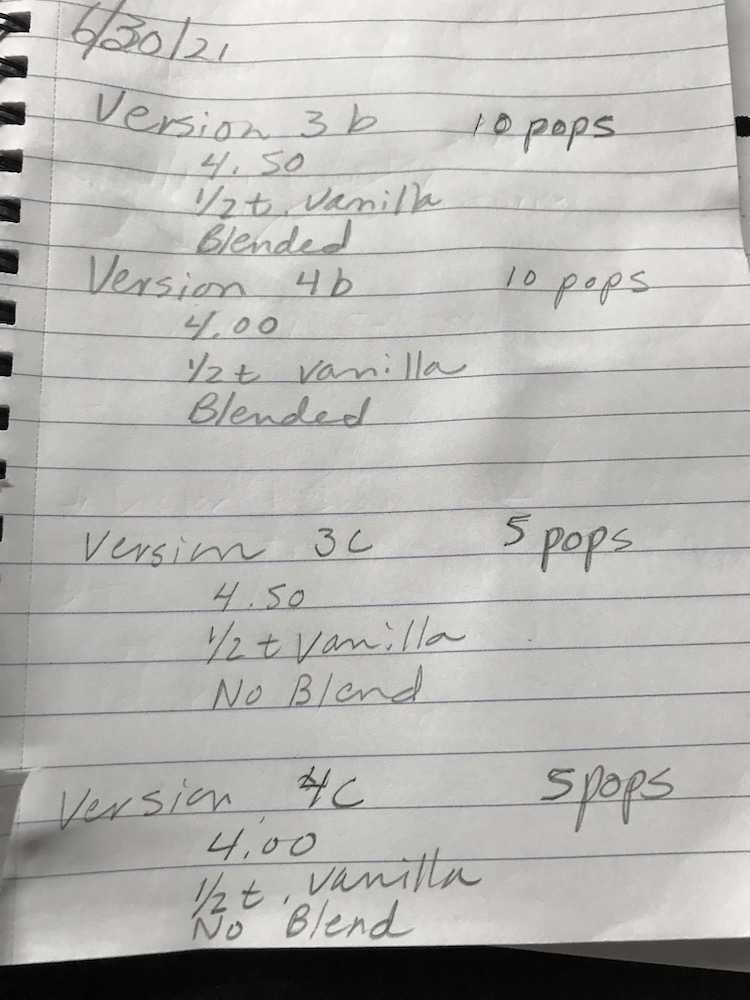 6/30/21
Version 3b 10 pops
4.50
1/2 t. vanilla
Blended
Version 4b 10 pops
4.00
1/2 t vanilla
Blended
Version 3c 5 pops
4.50
1/2 t Vanilla
No Blend
Version 4c 5 pops
4.00
1/2 t. vanilla
No Blend